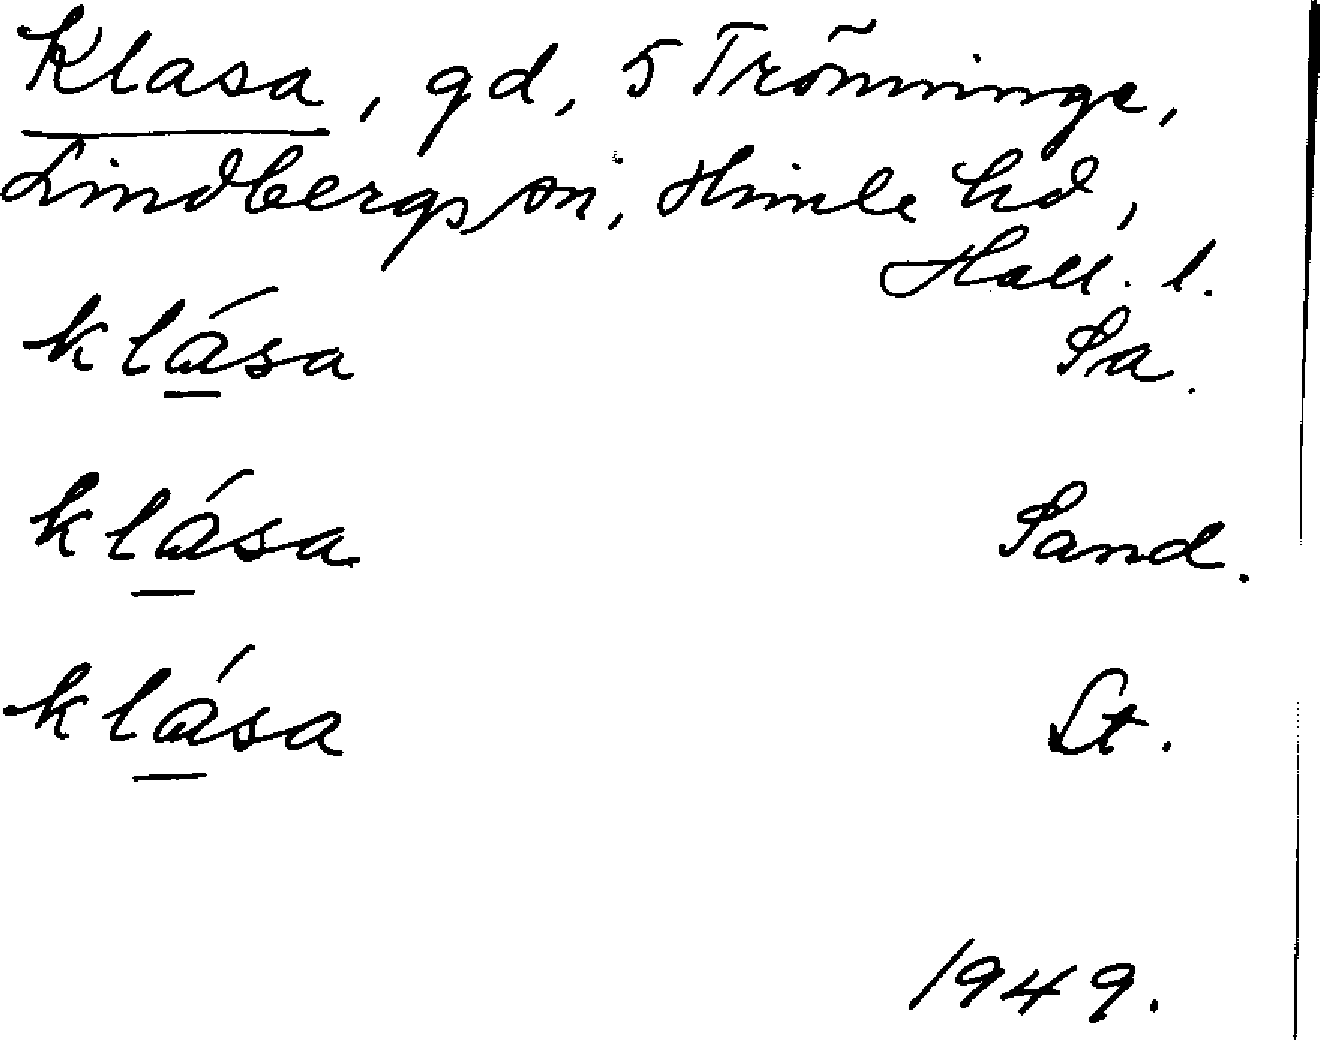 Klasa, gd, 5 Trönninge,
Lindbergs sn, Himle hd,
Hall. l.
klása Sa.
klása Sand.
klása St.
1949.